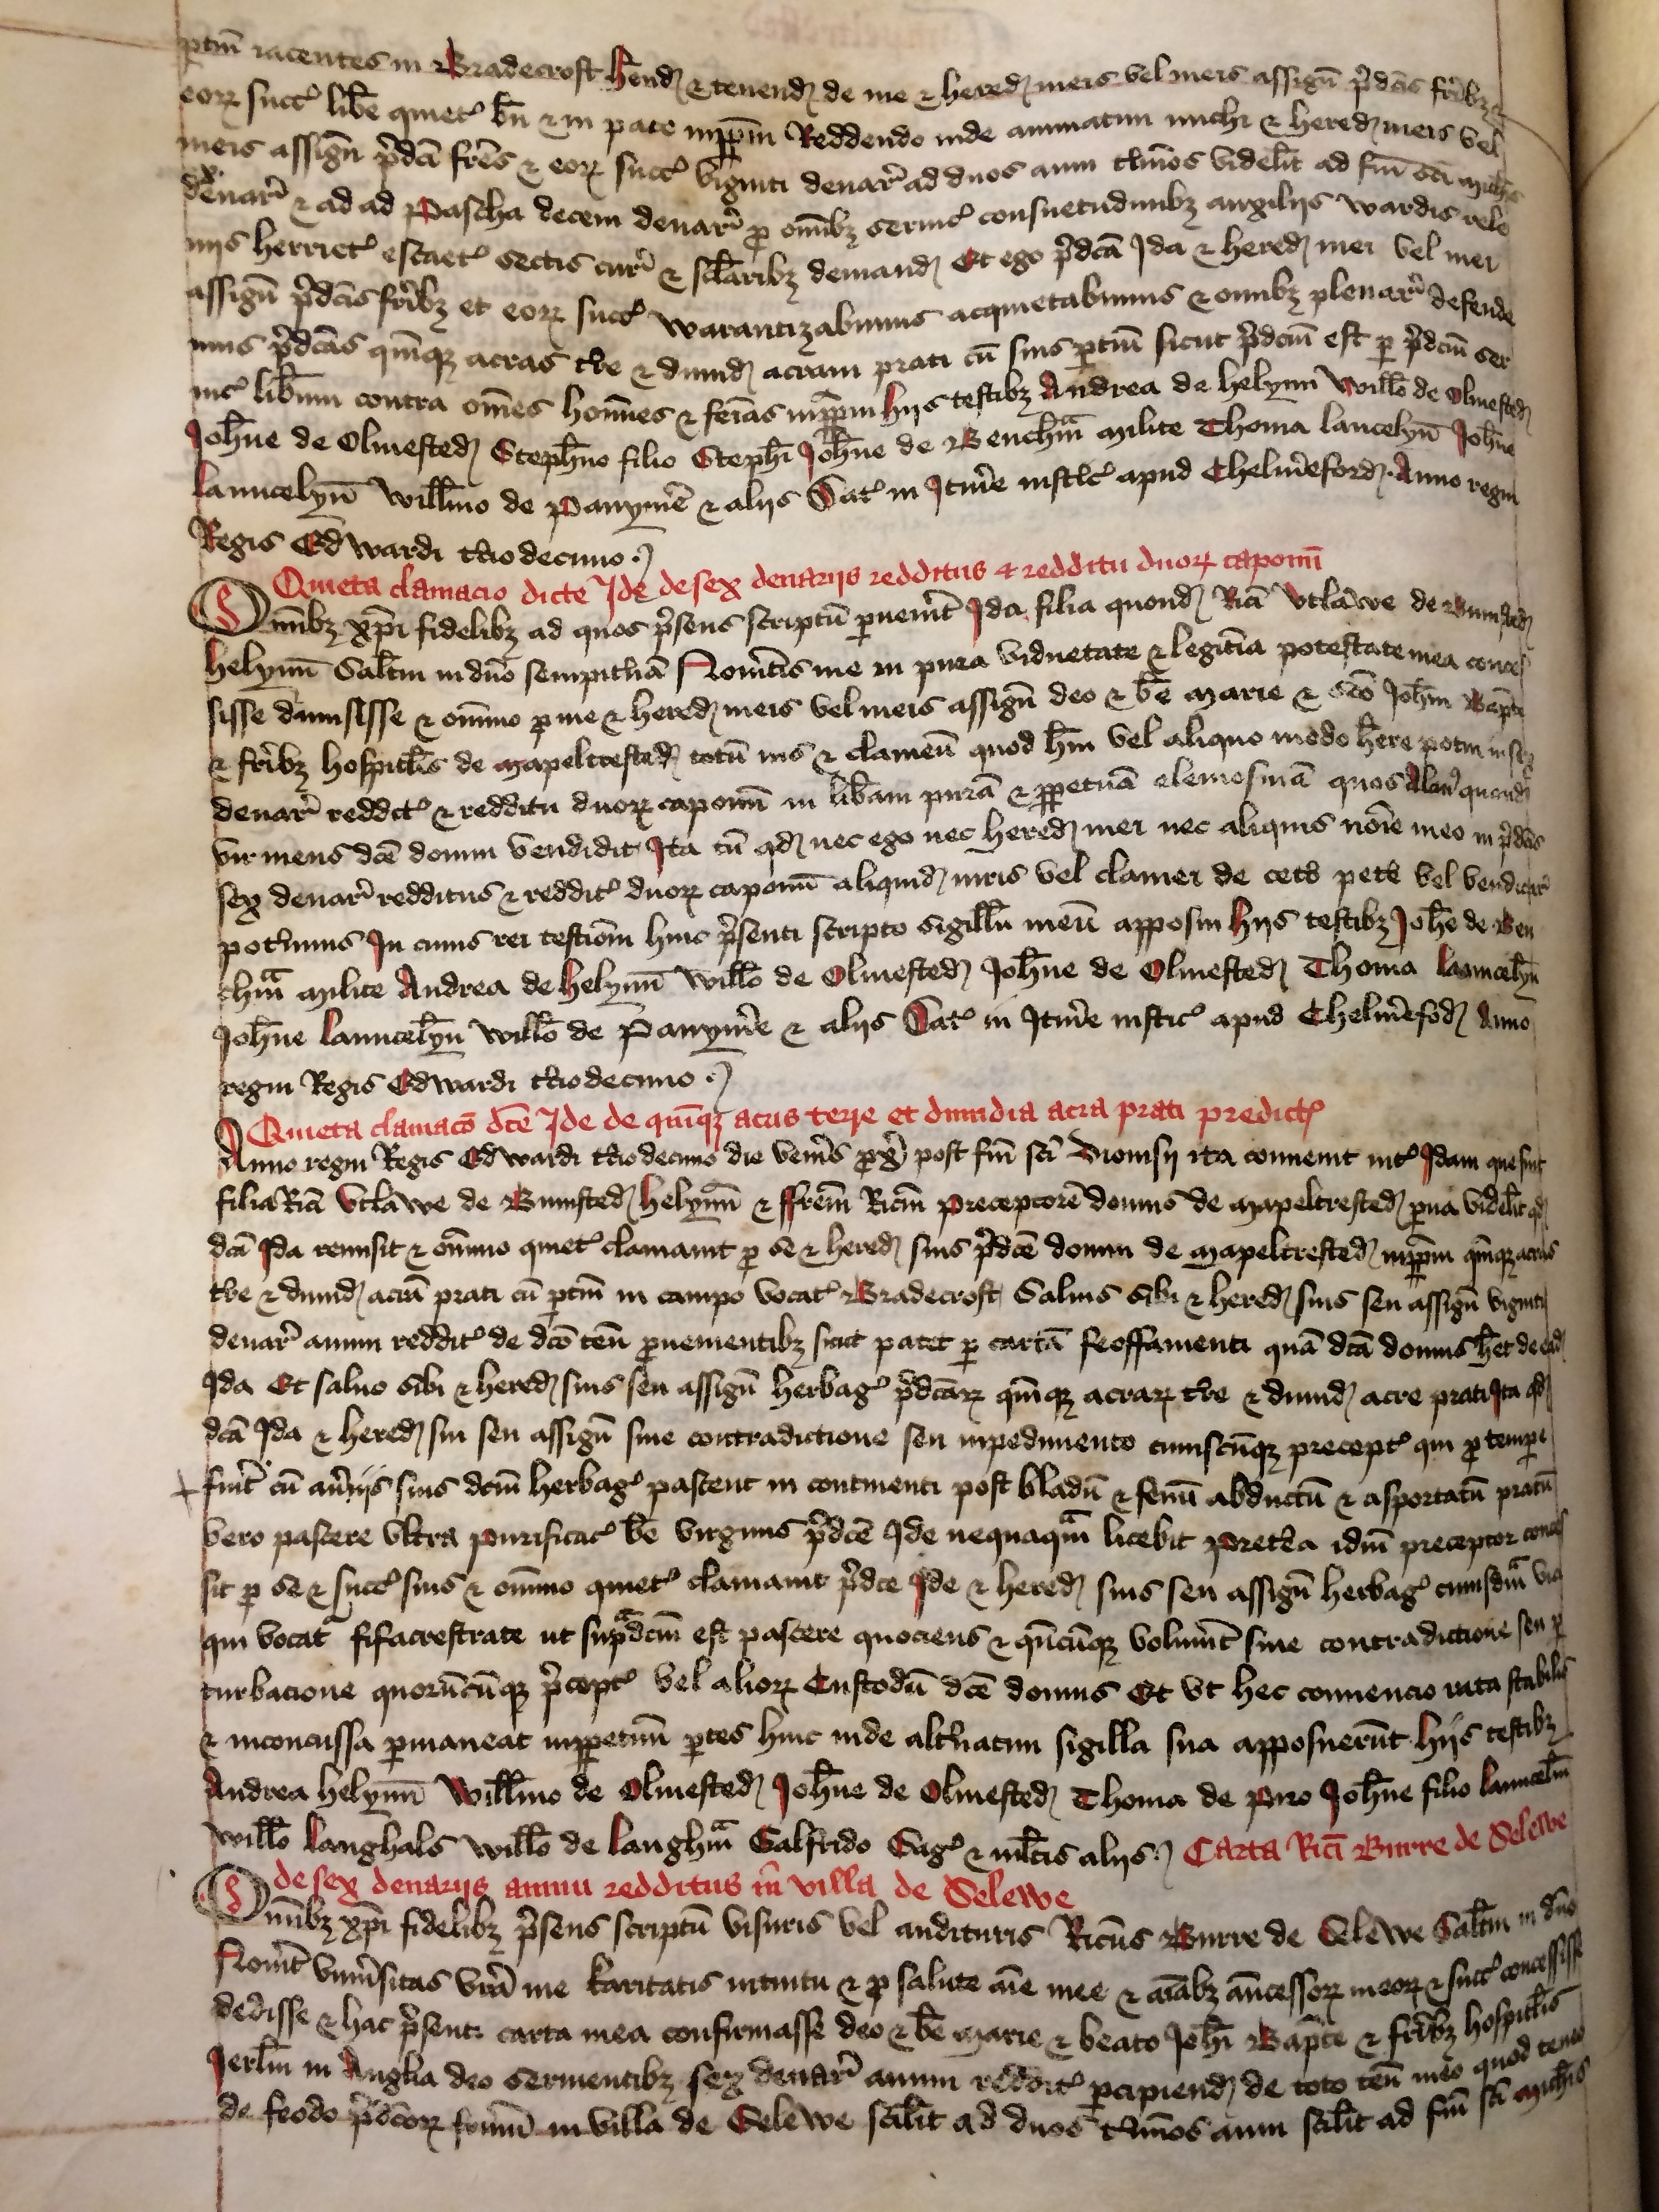 ptin̄ iacentes in Bradecroft hend̄ & tenend̄ de me & hered̄ meis vel meis assign̄ p̄dc̄is fr̄ibz &
eoꝝ succ̉ lib̄e quiet̉ bn̄ & in pace inpp̄m Reddendo inde annuatim michi & hered̄ meis vel
meis assign̄ p̄dc̄i fr̄es & eoꝝ succ̉ viginti denar̄ ad duos anni t̄mios videlit̄ ad fm̄ sc̄i Mich̄is
denar̄ & ad ad Pascha decem denar̄ p omībz seruic̉ consuetudinibz auxilijs wardis rele
uijs herriet̉ escaet̉ sectis cur̄ & sc̄laribz demand̄ Et ego p̄dc̄a Ida & hered̄ mei vel mei
assign̄ p̄dc̄is fr̄ibz et eoꝝ succ̉ warantizabimus acquietabimus & omībz plenar̄ defende
mus p̄dc̄as quīqz acras t̄re & dimid̄ acram prati cū suis ptin̄ sicut p̄dcm̄ est p p̄dcm̄ ser
uic̉ lib̄um contra om̄es homīes & feīas inpp̄m hijs testibz Andrea de helyun̄ Willō de Olmested̄
Joh̄ne de Olmested̄ Steph̄no filio Steph̄i Joh̄ne de Bench̄m milite Thoma lancelyn̄ Joh̄ne
launcelyn̄ Will̄mo de Panym̄e & alijs Dat̉ in Itin̄e iustic̉ apud Chelm̄eford̄ Anno regni
Regis Edwardi t̄ciodecimo
Quieta clamacio dicte Ide de sex denarijs redditus & redditu duoꝝ caponū
Omībz xp̄i fidelibz ad quos p̄sens scriptū puen̄it Ida filia quond̄ Ric̄i Vtlawe de Bumsted̄
helyun̄ Salt̄m in dn̄o sempit̄nā Noūitis me in pura viduetate & legit̄ia potestate mea conces
sisse dimisisse & om̄īno p me & hered̄ meis vel meis assign̄ deo & b̄e Marie & sc̄o Joh̄i Bapt̄e
& fr̄ibz hospit̄lis de Mapeltrested̄ totū ius & clameū quod h̄ui vel aliquo modo h̄ere potui in sex
denar̄ reddit̉ & redditu duoꝝ caponū in lib̄am purā & ppetuā elemosinā quos Alan̉ quond̄
vir meus dc̄e domui vendidit Ita tn̄ qd̄ nec ego nec hered̄ mei nec aliquis noīe meo in p̄dc̄is
sex denar̄ redditus & reddit̉ duoꝝ caponū aliquid̄ iuris vel clamei de cet̄o pet̄e vel vendicar̄
pot̄imus In cuius rei testiom̄ huic p̄senti scripto sigillū meū apposui hijs testibz Joh̄e de Ben
chm̄ milite Andrea de helyun̄ Willō de Olmested̄ Joh̄ne de Olmested̄ Thoma launcelyn̄
Joh̄ne launcelyn̄ Willō de Panym̄e & alijs Dat̉ in Itin̄e iustic̉ apud Chelm̄efod̄ Anno
regni Regis Edwardi t̄ciodecimo
Quieta clamacō dc̄e Ide de quīqz acris terre et dimidia acra prati predict̉
Anno regni Regis Edwardi t̄ciodecimo die ven̄is px̄ post fm̄ sc̄i Dionisij ita conuenit int̉ Idam que fuit
filia Ric̄i Vtlawe de Bumsted̄ helyun̄ & ffrem̄ Ricm̄ preceptorē domus de Mapeltrested̄ videlit̄ qd̄
dc̄a Ida remisit & om̄īno quiet̉ clamauit p se & hered̄ suis p̄dc̄e domui de Mapeltrested̄ inpp̄m quīqz acras
t̄re & dimid̄ acrā prati cū ptin̄ in campo vocat̉ Bradecroft Saluis sibi & hered̄ suis seu assign̄ viginti
denar̄ anni reddit̉ de dc̄o ten̄ puenientibz sicut patet p cartā feoffamenti quā dc̄a domus h̄et de ead̄
Ida Et saluo sibi & hered̄ suis seu assign̄ herbag̉ p̄dc̄aꝝ quīqz acraꝝ t̄re & dimid̄ acre prati Ita qd̄
dc̄a Ida & hered̄ sui seu assign̄ sine contradictione seu inpedimento cuiuscūqz precept̉ qui p tempe
fuīt cū au̅ijs suis dcm̄ herbag̉ pascent in continenti post bladū & fenū abductū & asportatū pratū
vero pascere vltra purificac̉ b̄e virginis p̄dc̄e Ide nequaqm̄ licebit Pret̄ea idm̄ preceptor conces
sit p se & succ̉ suis & om̄īno quiet̉ clamauit p̄dc̄e Ide & hered̄ suis seu assign̄ herbag̉ cuiusdm̄ via
qui vocat̄ fifacrestrate ut sup̄dcm̄ est pascere quociens & qn̄cūqz voluīt sine contradictione seu p
turbacione quorūcūqz p̄cept̉ vel alioꝝ Custodū dc̄e domus Et vt hec conuencio rata stabilis
& inconcussa pmaneat inppetuū ptes huic inde alt̄natim sigilla sua apposuerūt hijs testibz
Andrea helyun̄ Will̄mo de Olmested̄ Joh̄ne de Olmested̄ Thoma de Piro Joh̄ne filio launcelin̄
Willō langhals Willō de langhm̄ Galfrido Sag̉ & mlt̄is alijs Carta Ric̄i Burre de Selewe
de sex denarijs annui redditus in villa de Selewe
Omībz xp̄i fidelibz p̄sens scriptū visuris vel audituris Ricūs Burre de Selewe Salt̄m in dn̄o
Nou̅it vniu̅sitas vr̄a me karitatis intuitu & p salute aīe mee & aīabz an̄cessoꝝ meoꝝ & succ̉ concessisse
dedisse & hac p̄senti carta mea confirmasse deo & b̄e Marie & beato Joh̄i Bapt̄e & fr̄ibz hospit̄lis
Jerlm̄ in Anglia deo seruientibz sex denar̄ anni reddit̉ pcipiend̄ de toto ten̄ meo quod teneo
de feodo p̄dc̄oꝝ in villa de Selewe scilit̄ ad duos t̄mios anni scilit̄ ad fm̄ sc̄i Mich̄is